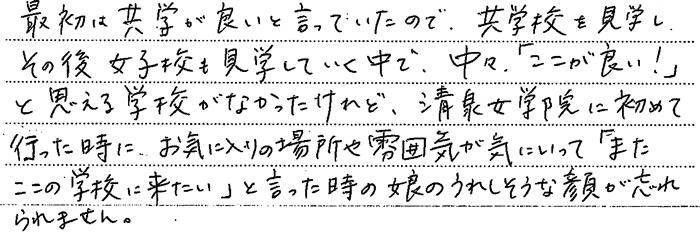 最初は共学が良いと言っていたので、共学校を見学し、
その後女子校も見学していく中で、中々「ここが良い!」
と思える学校がなかったけれど、清泉女学院に初めて
行った時に、お気に入りの場所や雰囲気が気にいって「また
ここの学校に来たい」と言った時の娘のうれしそうな顔が忘れ
られません。